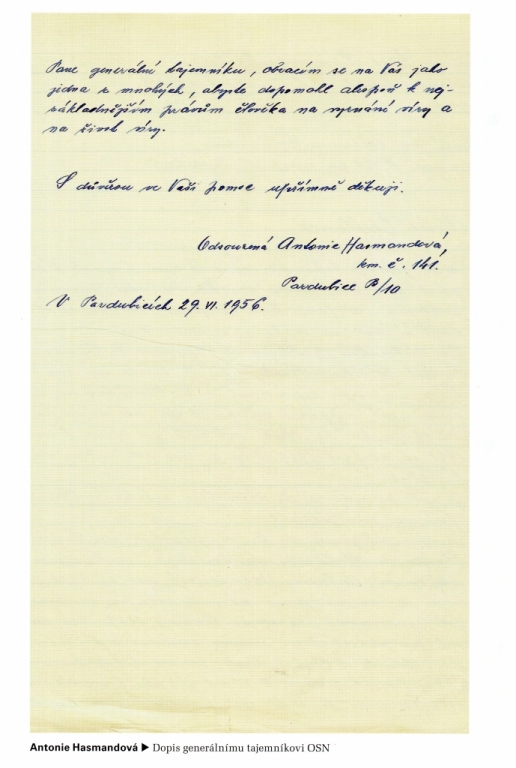 Pane generální tajemníku, obracím se na Vás jako
jedna z mnohých, abyste dopomohl alespoň k nej-
základnějším právům člověka na vyznání víry a
na život víry.
S důvěrou ve Vaši pomoc upřímně děkuji.
Odsouzená Antonie Hasmandová,
km. č. 141.
Pardubice B/10
V Pardubicích 29. VI. 1956.
Antonie Hasmandová ▶ Dopis generálnímu tajemníkovi OSN